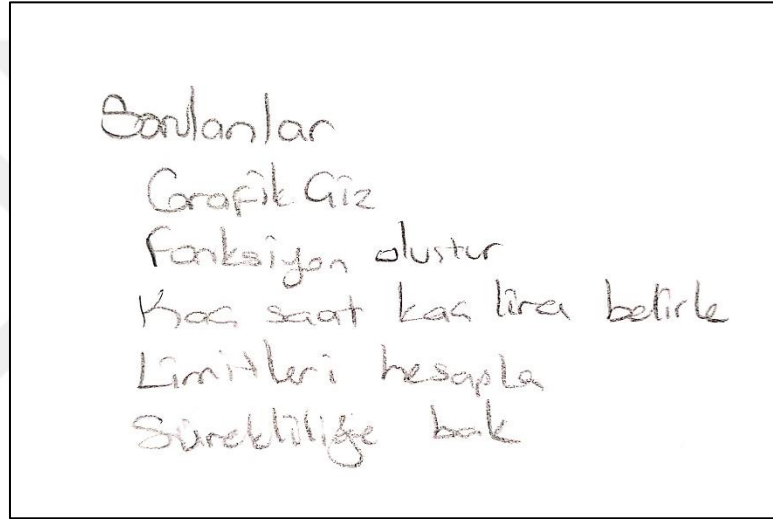 Sorulanlar
Grafik Çiz
Fonksiyon oluştur
Kaç saat kaç lira belirle
Limitleri hesapla
Sürekliliğe bak